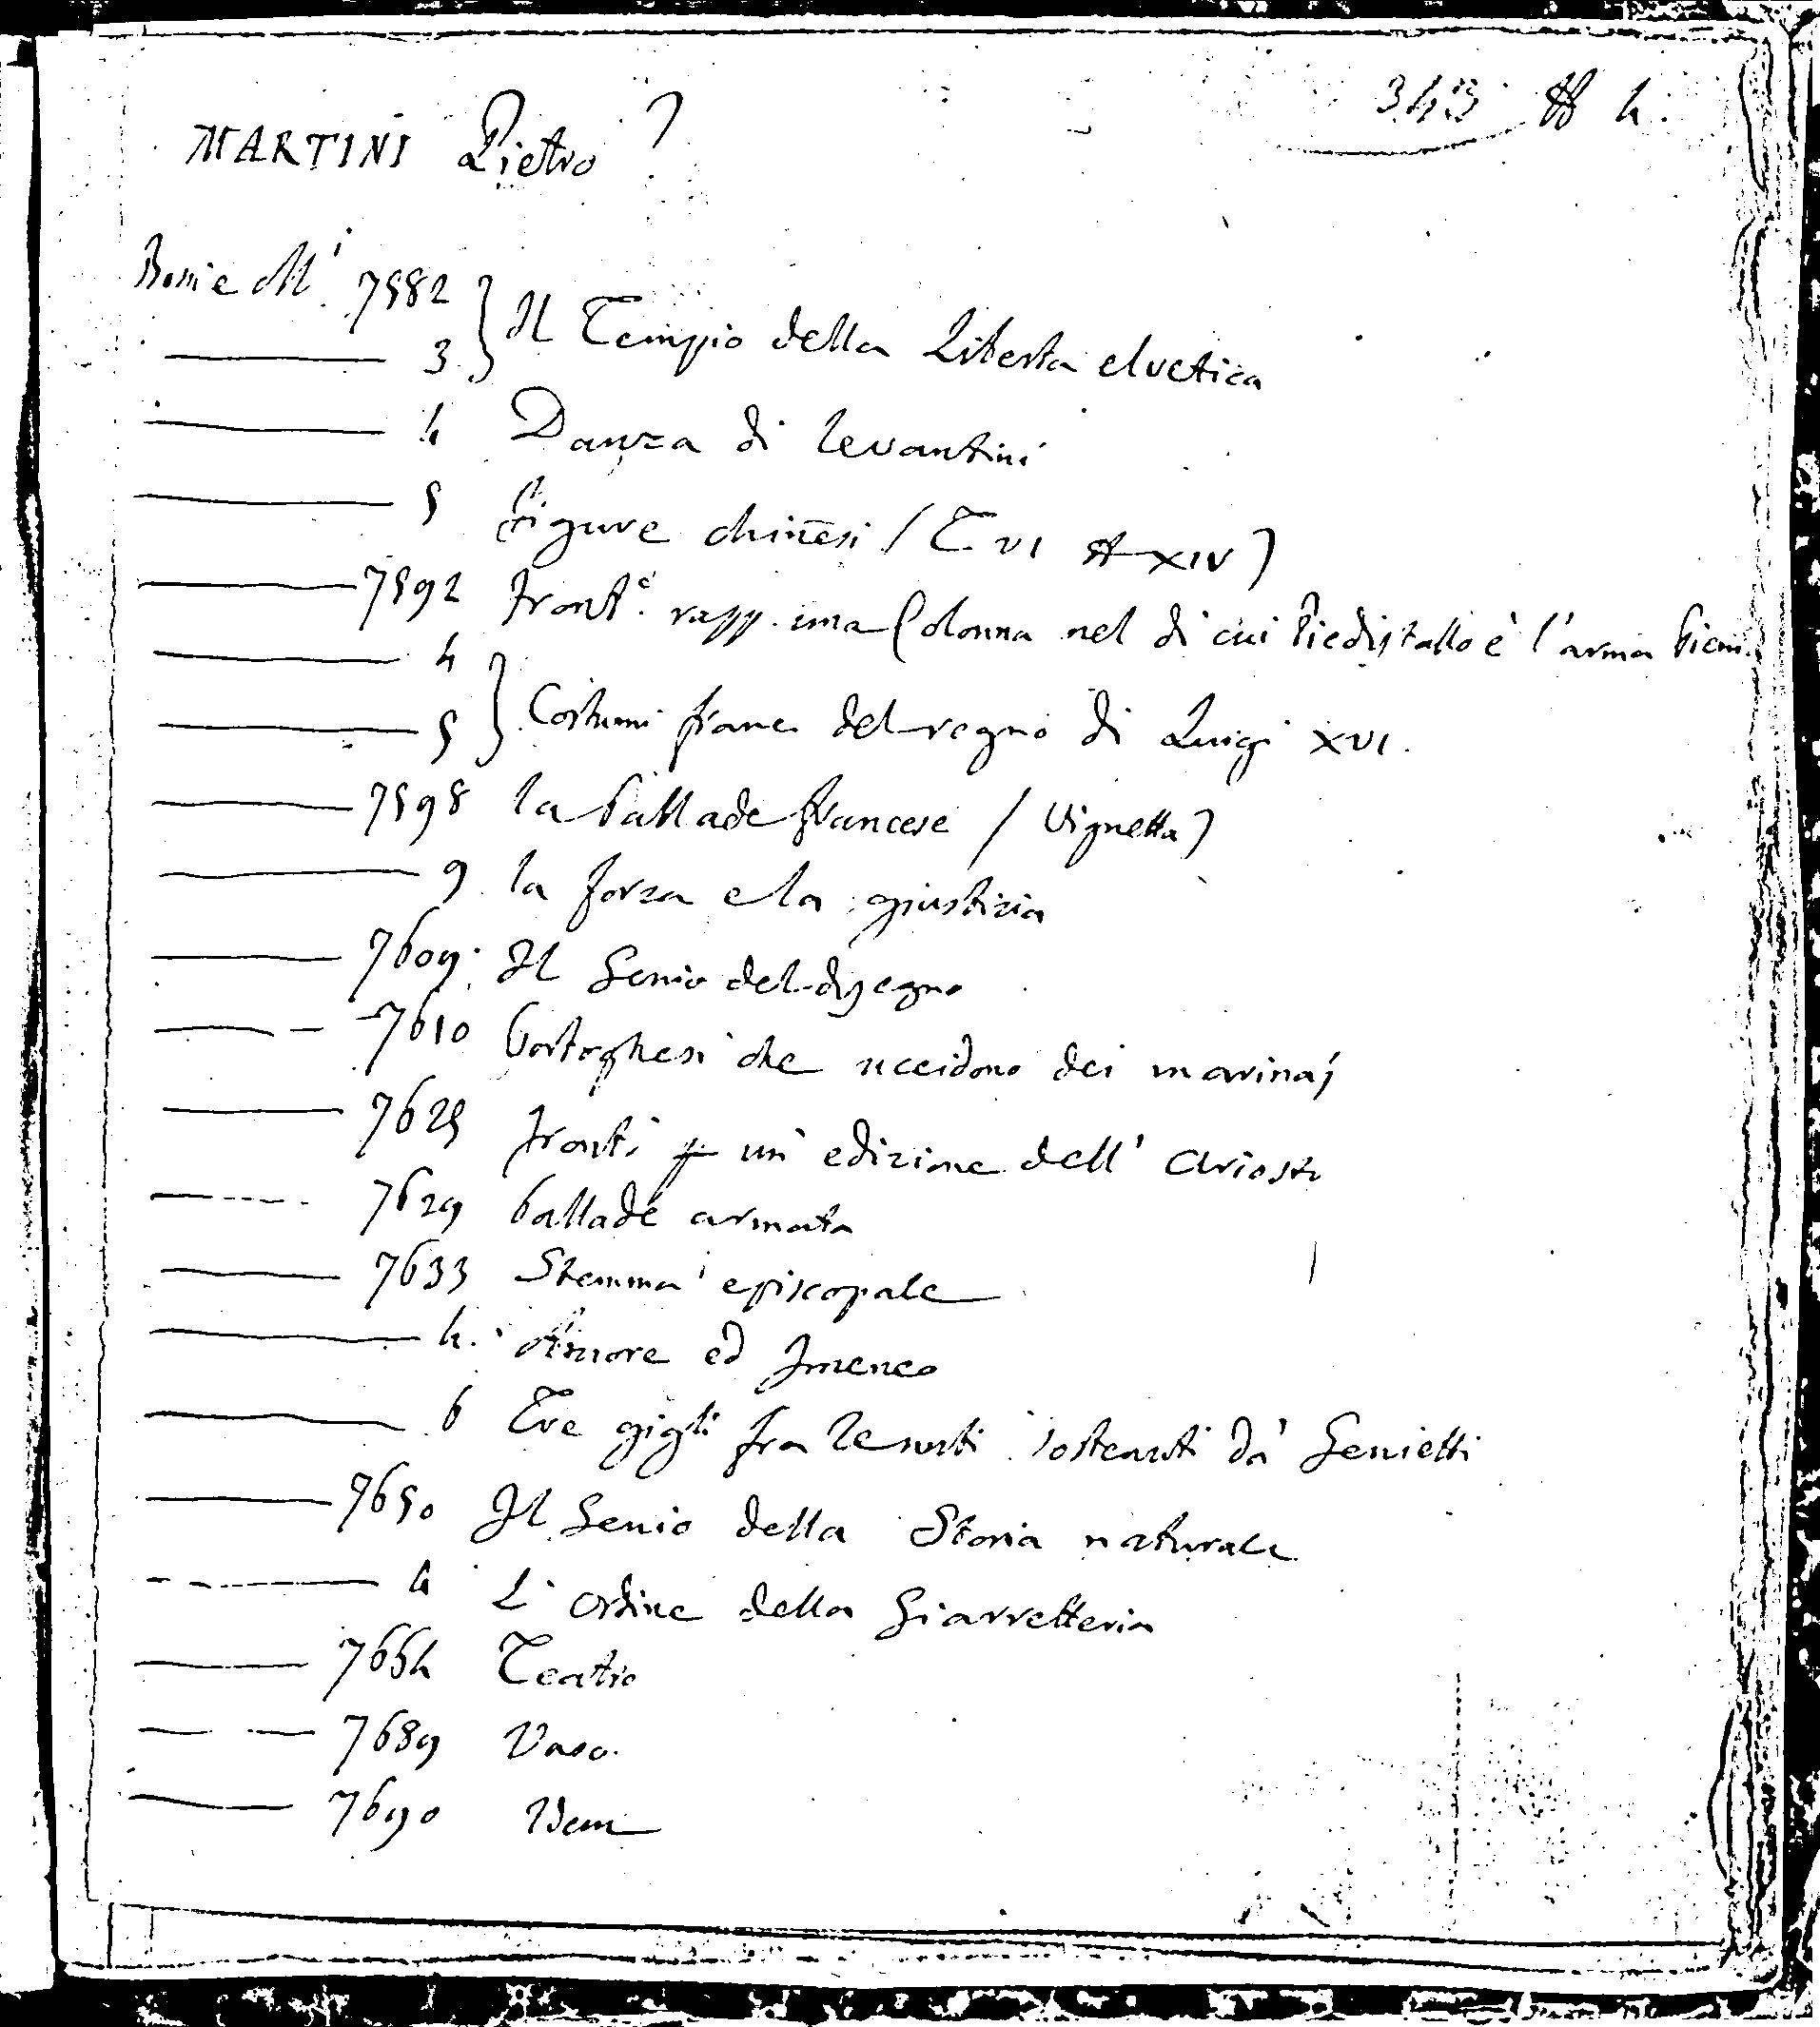 343 4.
MARTINI Pietro ?
7582 } Il Tempio della Liberta elvetica
3 }
4 Danza di levantini
5 figure chinesi (T. VI XIV)
7592 Front.e rapp. una Colonna nel di cui Piedistallo è l'arma
4 } Costumi franc. del regno di Luigi XVI.
5 }
7598 la Pallade francese (Vignetta)
9 la forza e la giustizia
7609. Il Genio del disegno
7610 Portoghesi che uccidono dei marinaj
7625 fronti. un' edizione dell' Ariosto
7629 Pallade armata
7633 Stemma episcopale
4. Amore ed Imeneo
6 Tre gigli fra le nubi sostenuti da' Genietti
7650 Il Genio della Storia naturale
4 L'ordine della Giarrettieria
7664 Teatro
7689 Vaso.
7690 Idem